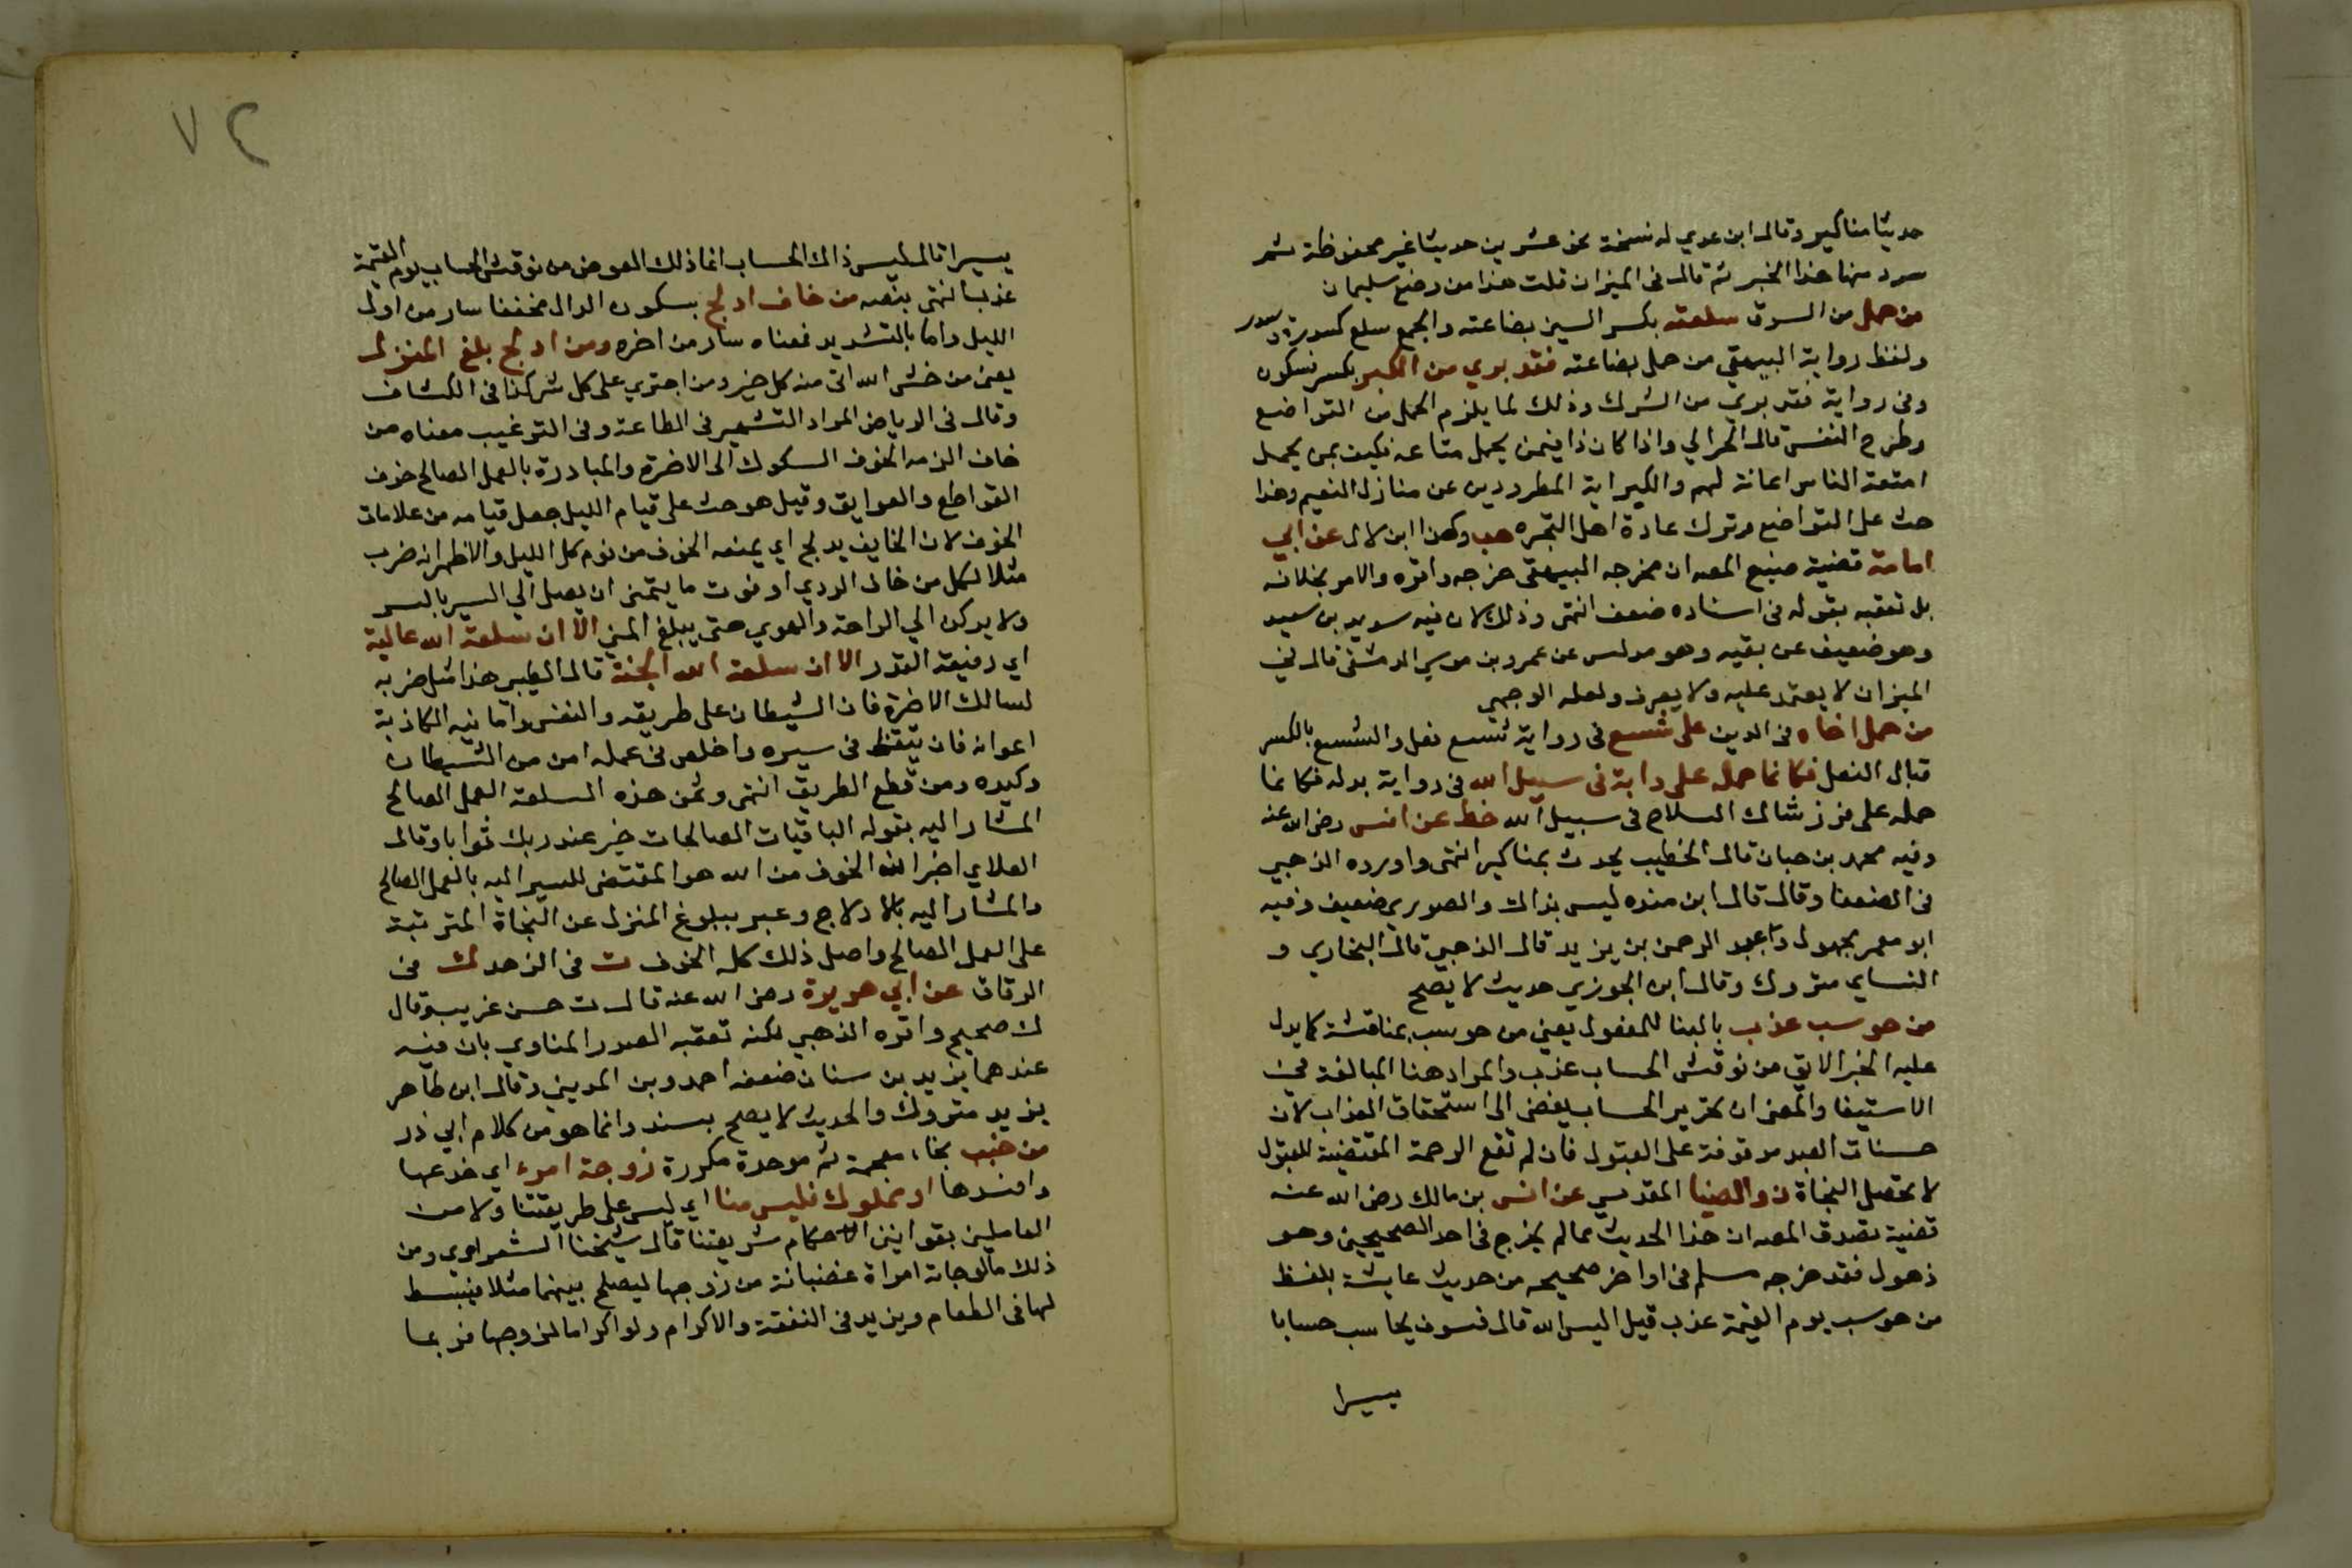 حديثا مناكير وقال ابن عدي له نسخة نحو عشرين حديثا غير محفوظة ثم
سرد منها هذا الخبر ثم قال في الميزان قلت هذا من وضع سليمان
من حمل من السوق سلعته بكسر السين بضاعته والجمع سلع كسدرة وسدر
ولفظ رواية البيهقي من حمل بضاعته فقد بري من الكبر بكسر فسكون
وفي رواية فقد بري من الشرك وذلك لما يلزم الحمل من التواضع
وطرح النفس قال الحرالي واذا كان ذا فيمن يحمل متاعه فكيف بمن يحمل
امتعة الناس اعانة لهم والكبر اية المطرودين عن منازل النعيم وهذا
حث على التواضع وترك عادة اهل التجبره هب وكذا ابن لال عن ابي
امامة قضية صنيع المصـ ان مخرجه البيهقي خرجه واقره والامر بخلافه
بل تعقبه بقوله في اسناده ضعف انتهى وذلك لان فيه سويد بن سعيد
وهو ضعيف عن بقيه وهو مدلس عن عمرو بن موسي الدمشقي قال في
الميزان لا يعتمد عليه ولا يعرف ولعله الوجيهي
من حمل اخاه في الدين على شسع في رواية شسع نعل والشسع بالكسر
قبال النعل فكانما حمله على دابة في سبيل الله في رواية بدله فكانما
حمله على فرس شاك السلاح في سبيل الله خط عن انس رضى الله عنه
وفيه محمد بن حبان قال الخطيب يحدث بمناكير انتهى واورده الذهبي
في الضعفا وقال قال ابن منده ليس بذاك والصوري ضعيف وفيه
ابو معمر مجهول وعبد الرحمن بن يزيد قال الذهبي قال البخاري و
النساي متروك وقال ابن الجوزي حديث لا يصح
من حوسب عذب بالبنا للمفعول يعني من حوسب بمناقشة كما يدل
عليه الخبر الاتي من نوقش الحساب عذب والمراد هنا المبالغة في
الاستيفا والمعنى ان تحرير الحساب يفضي الى استحقاق العذاب لان
حسنات العبد موقوفة على القبول فان لم تقع الرحمة المقتضية للقبول
لا تحصل النجاة ن والضيا المقدسي عن انس بن مالك رضى الله عنه
قضية تصرف المصـ ان هذا الحديث مما لم يخرج في احد الصحيحين وهو
ذهول فقد خرجه مسلم في اواخر صحيحه من حديث عايشة بلفظ
من حوسب يوم القيمة عذب قيل اليس الله قال فسوف يحاسب حسابا
يسيرا
٧٢
يسيرا قال ليس ذاك الحساب انما ذلك العرض من نوقش الحساب يوم القيمة
عذب انتهى بنصه من خاف ادلج بسكون الدال مخففا سار من اول
الليل واما بالتشديد فمعناه سار من اخره ومن ادلج بلغ المنزل
يعني من خشى الله اتى منه كل خير ومن اجترى على كل شر كذا في الكشاف
وقال في الرياض المراد التشمير في الطاعة وفي الترغيب معناه من
خاف الزمه الخوف السلوك الى الاخرة والمبادرة بالعمل الصالح خوف
القواطع والعوايق وقيل هو حث على قيام الليل جعل قيامه من علامات
الخوف لان الخايف يدلج اي يمنعه الخوف من نوم كل الليل والاظهر انه ضرب
مثلا لكل من خاف الردي او فوت ما يتمنى ان يصل الي السير بالسر
ولا يركن الي الراحة والهوي حتى يبلغ المني الا ان سلعة الله غالية
اي رفيعة القدر الا ان سلعة الله الجنة قال الطيبي هذا مثل ضربه
لسالك الاخرة فان الشيطان على طريقه والنفس وامانيه الكاذبة
اعوانه فان تيقظ في سيره واخلص في عمله امن من الشيطان
وكيده ومن قطع الطريق انتهى وثمن هذه السلعة العمل الصالح
المشار اليه بقوله الباقيات الصالحات خير عند ربك ثوابا وقال
العلاي اخبر ان الخوف من الله هو المقتضي للسير اليه بالعمل الصالح
والمشار اليه بالادلاج وعبر ببلوغ المنزل عن النجاة المترتبة
على العمل الصالح واصل ذلك كله الخوف ت في الزهد ك في
الرقاق عن ابي هريرة رضى الله عنه قال ت حسن غريب وقال
ك صحيح واقره الذهبي لكنه تعقبه الصدر المناوي بان فيه
عندهما يزيد بن سنان ضعفه احمد وبن المديني وقال ابن طاهر
يزيد متروك والحديث لا يصح بسند وانما هو من كلام ابي ذر
من خبب بخاء معجمة ثم موحدة مكررة زوجة امرء اي خدعها
وافسدها او مملوك فليس منا اي ليس على طريقتنا ولا من
العاملين بقوانين احكام شريعتنا قال شيخنا الشعراوي ومن
ذلك مالو جاته امراة غضبانة من زوجها ليصلح بينهما مثلا فيبسط
لها في الطعام ويزيد في النفقة والاكرام ولو اكراما لزوجها فربما